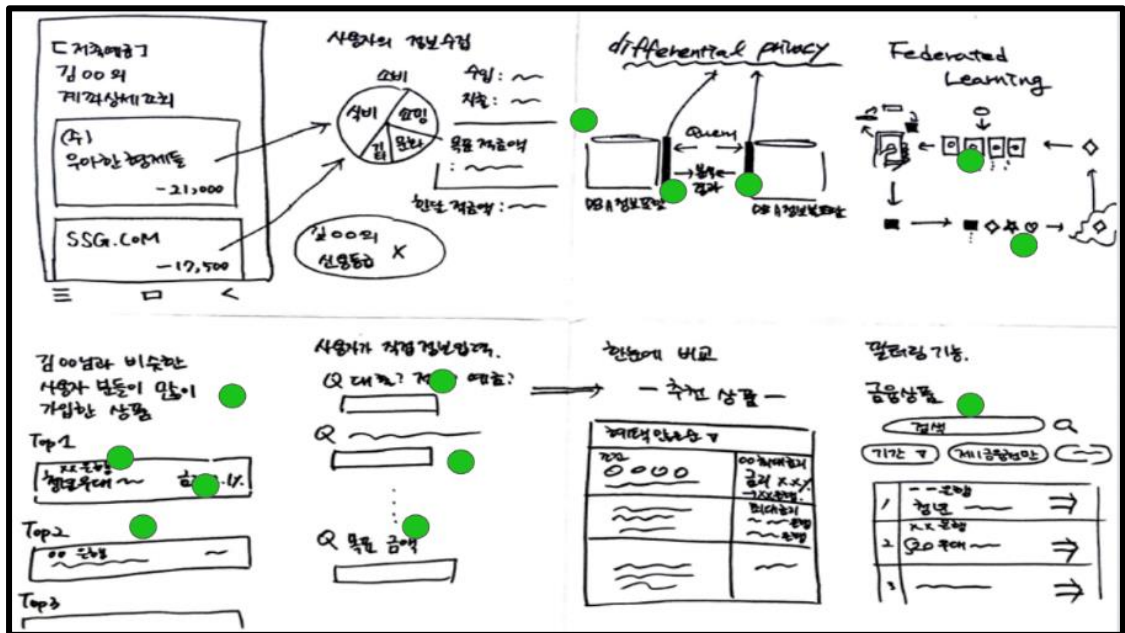 [저축예금]
김○○의
계좌상세조회
(주)
우아한형제들
-21,000
SSG.COM
-17,500
사용자의 정보수집
소비
식비
쇼핑
기타
문화
수입:
지출:
목표 적금액
:
한달 적금액:
김○○의
신용등급 X
differential privacy
Query
분석
결과
Federated
Learning
김○○님과 비슷한
사용자 분들이 많이
가입한 상품
Top1
xx은행
청년우대
Top2
○○ 은행
Top3
사용자가 직접 정보입력.
Q 대출? 예금?
Q
Q 목표 금액
한눈에 비교
- 추천 상품 -
혜택 많은순 ▼
○○최대금리
금리 X.X%
→XX은행.
최대금리
은행
은행
필터링 기능.
금융상품
검색
기간 ▼
제1금융권만
1
--은행
청년
2
xx 은행
우대
3